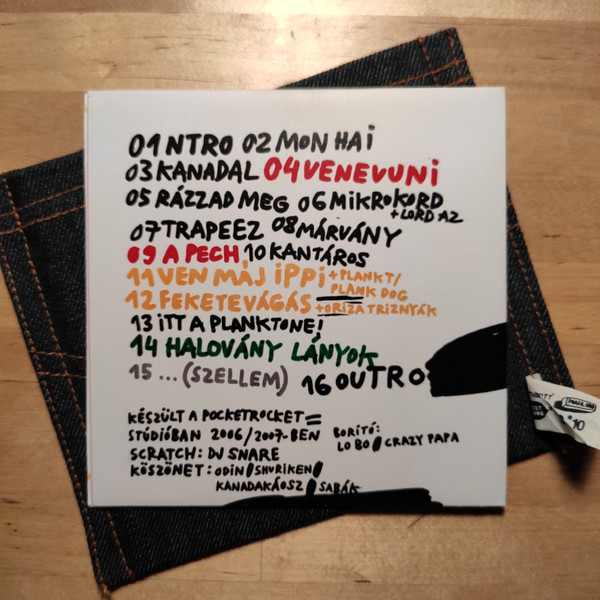 01 NTRO 02 MON HAi
03 KANADAL 04 VENEVUNi
05 RÁZZAD MEG 06 MiKROKORD
+ LORD AZ
07 TRAPEEZ 08 MÁRVÁNY
09 A PECH 10 KANTÁROS
11 VEN MÁJ iPPi + PLANKT/
PLANK DOG
12 FEKETEVÁGÁS + ORiZA TRiZNYÁK
13 iTT A PLANKTONE!
14 HALOVÁNY LÁNYOK
15 ... (SZELLEM) 16 OUTRO
KÉSZÜLT A POCKETROCKET=
STÚDIÓBAN 2006/2007-BEN
SCRATCH: DJ SNARE
KÖSZÖNET: ODiN/SHURiKEN/
KANADAKÁOSZ/SABÁK
BORÍTÓ:
LO BO/CRAZY PAPA
10